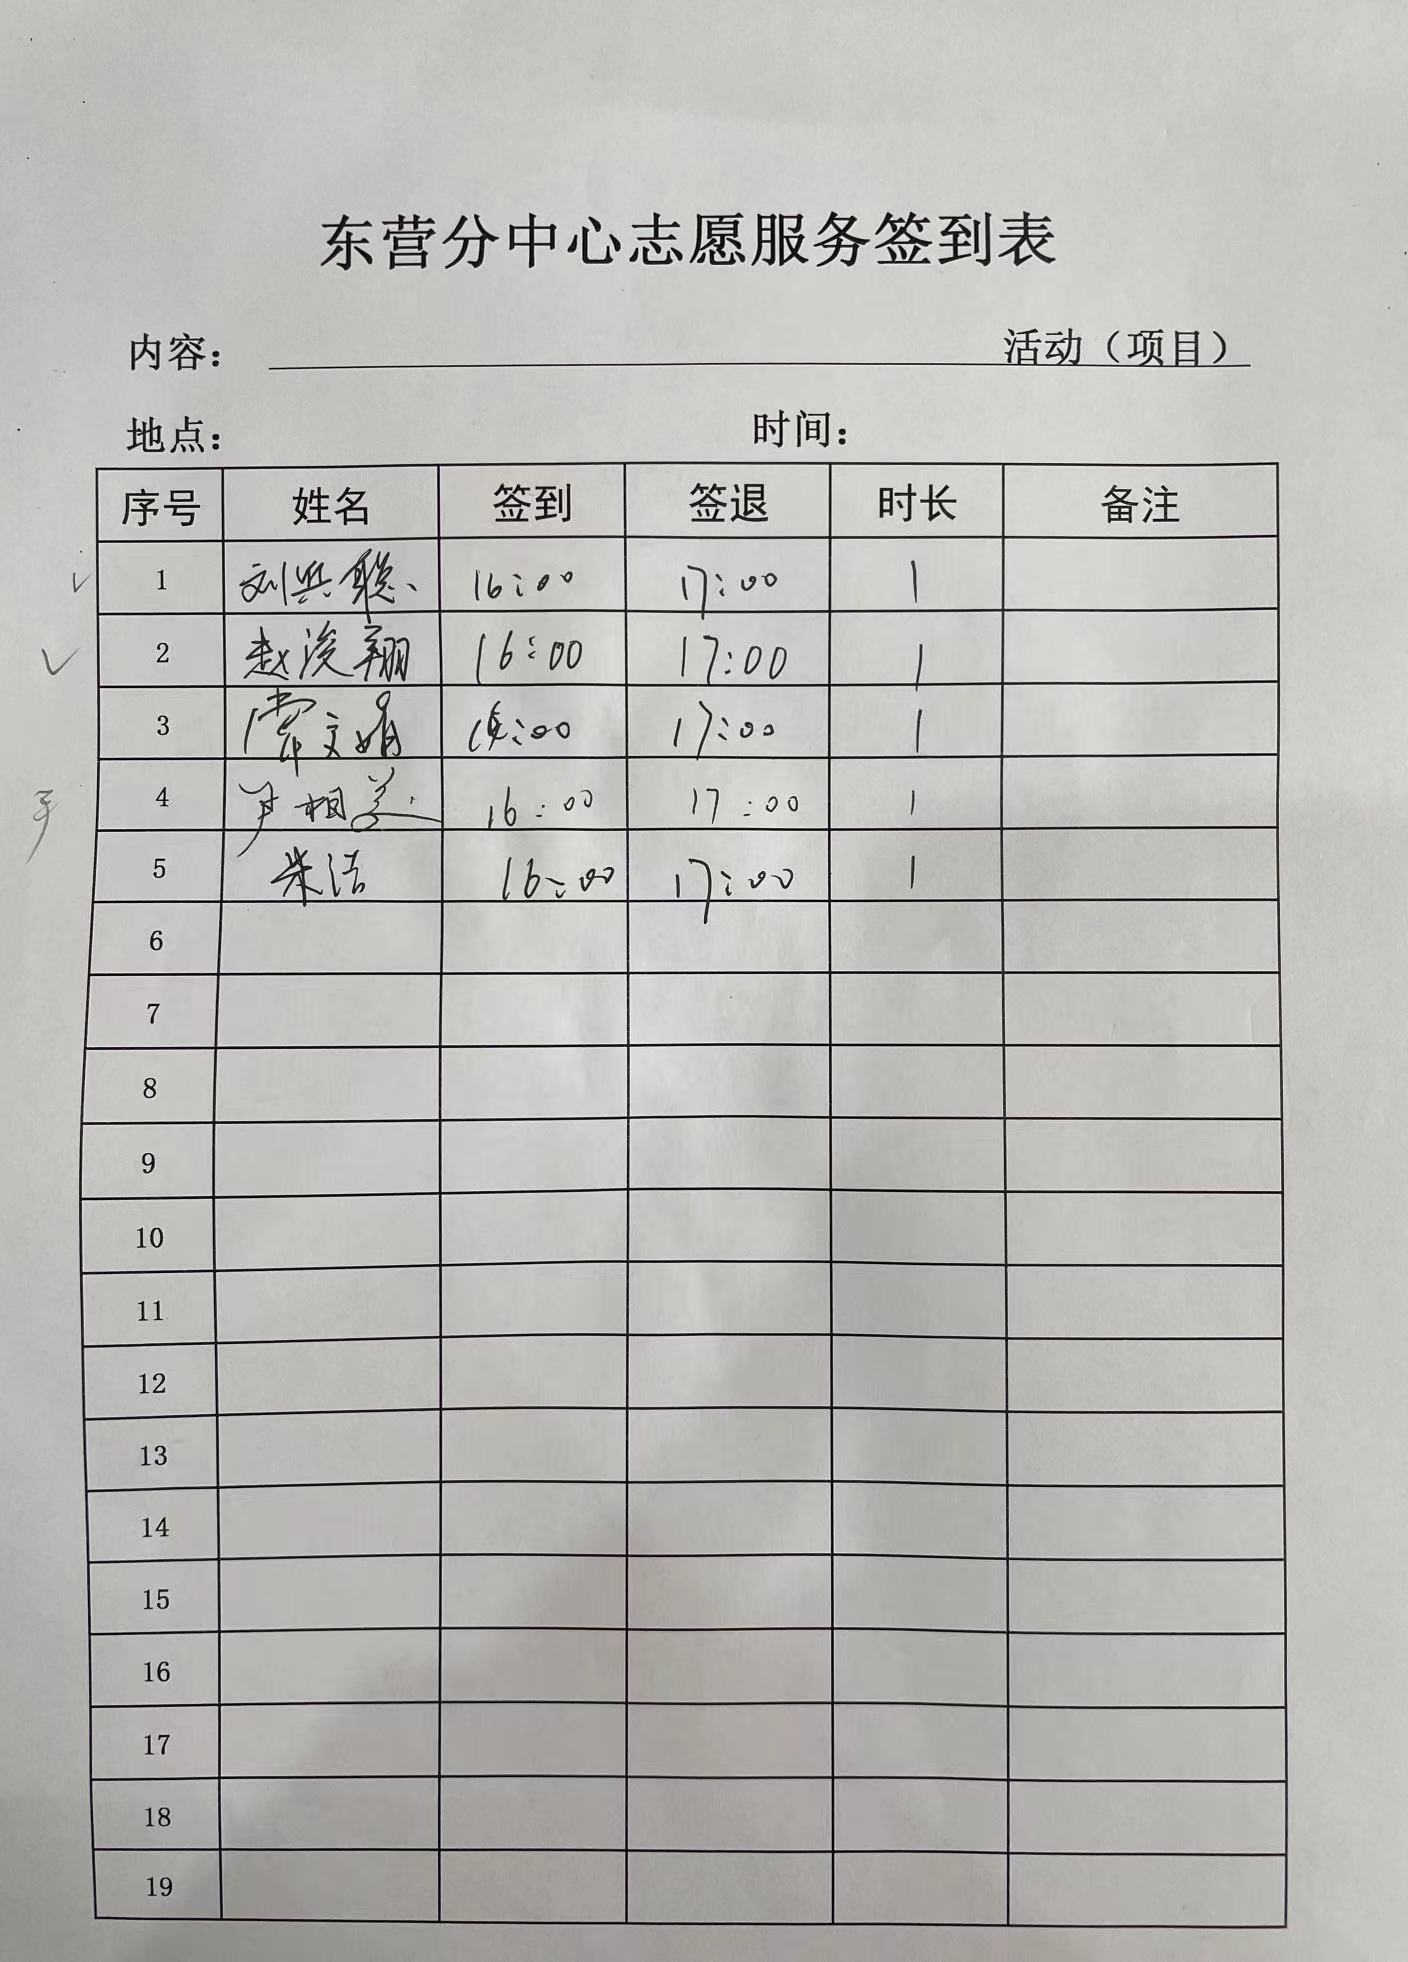 东营分中心志愿服务签到表
内容： 活动（项目）
地点： 时间：
序号 姓名 签到 签退 时长 备注
√ 1 刘兴聪 16:00 17:00 1
√ 2 赵浚翔 16:00 17:00 1
3 文娟 16:00 17:00 1
4 尹相美 16:00 17:00 1
5 朱洁 16:00 17:00 1
6
7
8
9
10
11
12
13
14
15
16
17
18
19